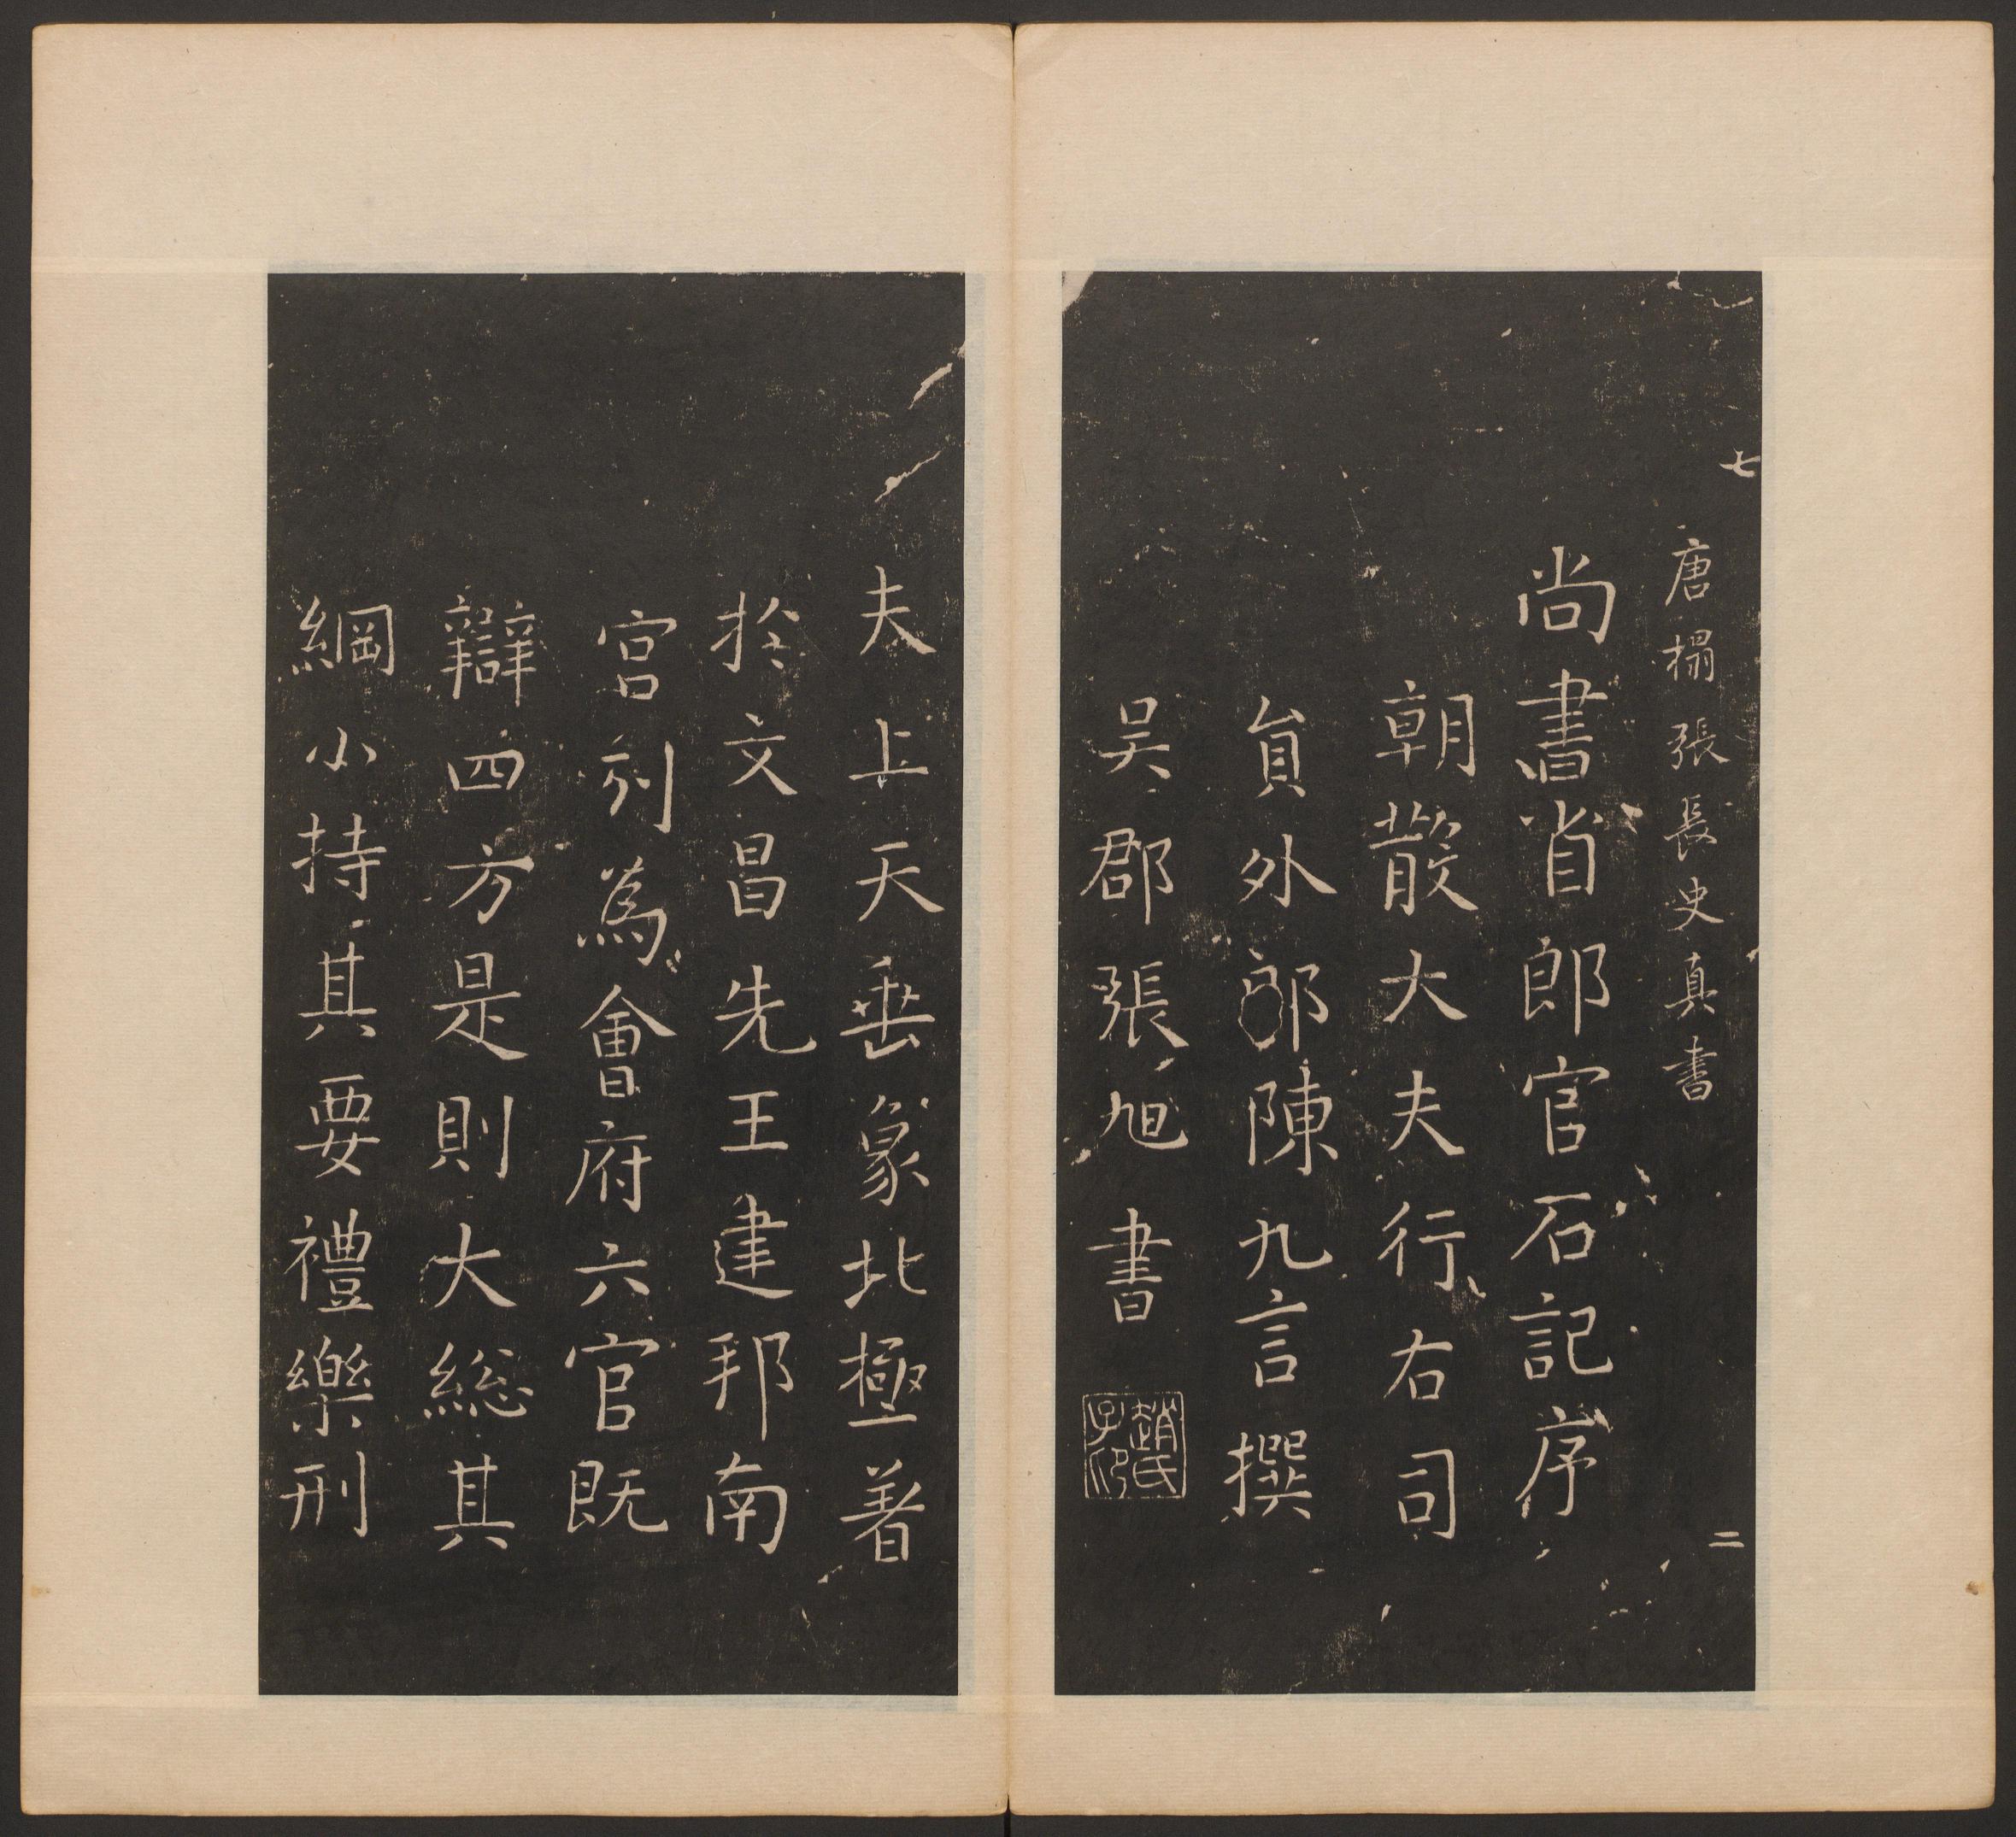 七
唐搨張長史真書
二
尚書省郎官石記序
朝散大夫行右司
貟外郎陳九言撰
吴郡張旭書
趙氏子印
夫上天垂象北極著
扵文昌先王建邦南
宮列為會府六官既
辯四方是則大緫其
綱小持其要禮樂刑